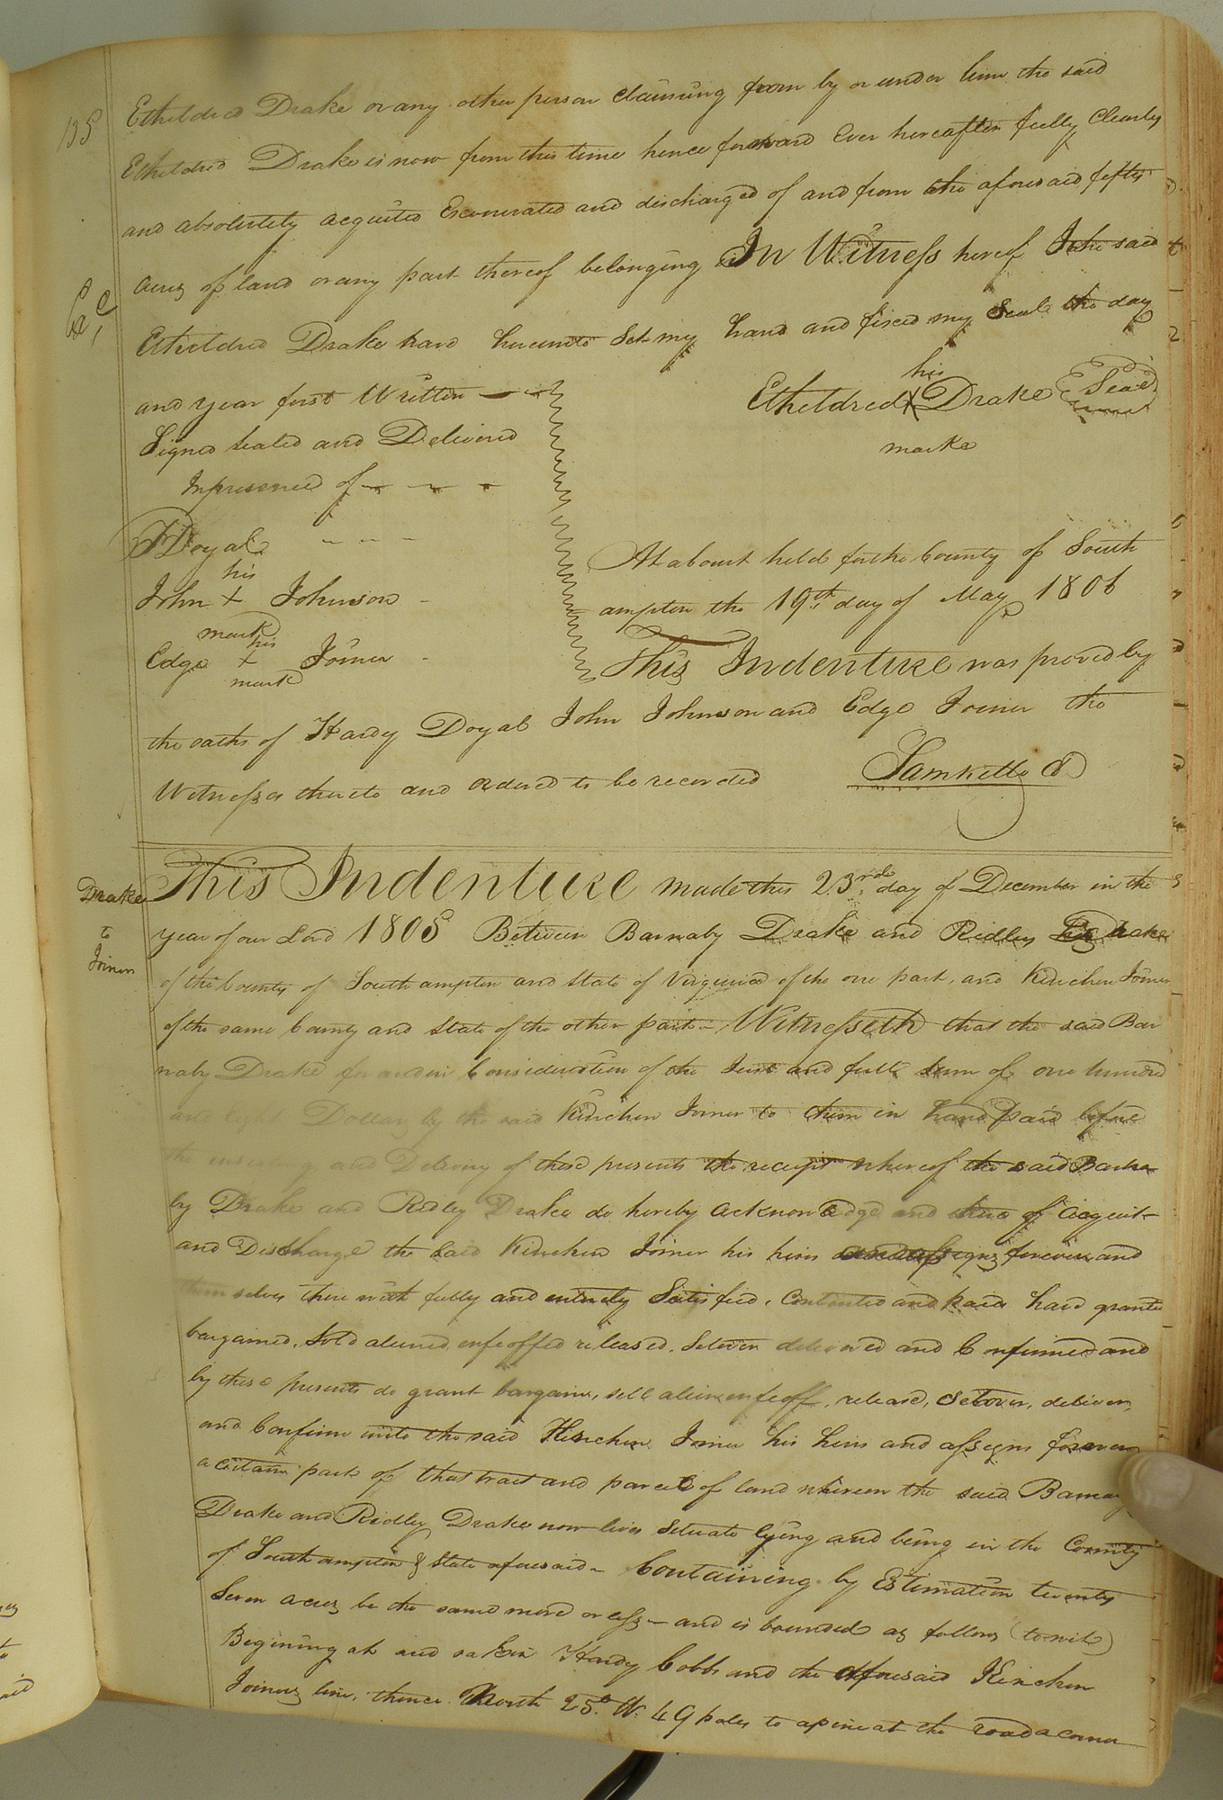 135
Etheldred Drake or any other person Claiming from by or under him the said
Etheldred Drake is now from this time hence forward Ever hereafter fully Clearly
and absolutely acquited Exonerated and discharged of and from the aforesaid fifty
acres of land or any part thereof belonging In Witness hereof I the said
Etheldred Drake have hereunto Set my hand and fixed my Seal the day
and year first Written
his
Etheldred X Drake Seal
marke
Signed sealed and Delivered
Inpresence of
H Doyal
his
John + Johnson
mark
his
Edge + Joiner
mark
At a Court held for the County of South
ampton the 19th day of May 1806
This Indenture was proved by
the oaths of Hardy Doyal John Johnson and Edge Joiner the
Witnesses thereto and ordered to be recorded
Drake
to
Joiner
This Indenture made this 23rd day of December in the
year of our Lord 1805 Between Barnaby Drake and Ridley Drake
of the County of Southampton and State of Virginia of the one part, and Kinchen Joiner
of the same County and State of the other part Witnesseth that the said Bar
naby Drake for and in Consideration of the Just and full Sum of one hundred
and Dollars by the said Kinchen Joiner to them in hand paid before
the and Delivery of these presents the receipt whereof the said Barna
by Drake and Ridley Drake do hereby acknowledge and there of acquit
and Discharge the Said Kinchen Joiner his heirs and assigns forever and
themselves there with fully and entirely Satisfied, Contented and paid have granted
bargained, Sold aliened enfeoffed released, Setover delivered and Confirmed and
by these presents do grant bargain, sell alien enfeoff, release, Setover, deliver,
and Confirm unto the said Kinchen Joiner his heirs and assigns forever
a certain part of that tract and parcel of land whereon the said Barnaby
Drake and Ridley Drake now lives Setuate lying and being in the County
of Southampton & State aforesaid Containing by Estimation twenty
Seven acres be the same more or less and is bounded as follows (to wit)
Begining at a red oak in Hardy Cobbs and the aforesaid Kinchen
Joiners line, thence North 25° W. 49 poles to a pine at the road a corner